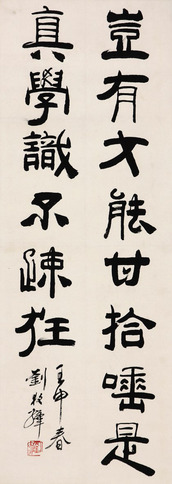 豈有才能甘拾唾是
真學識不疎狂
壬申春
劉